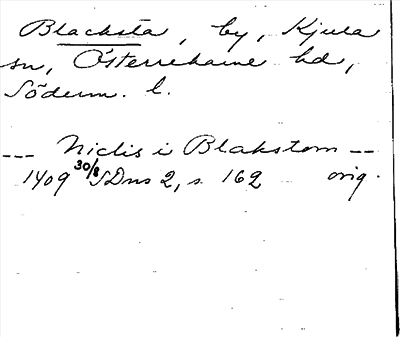 Blacksta, by, Kjula
sn, Österrekarne hd,
Söderm. l.
--- Niclis i Blakstom --
1409 30/8 SDns 2, s. 162 orig.